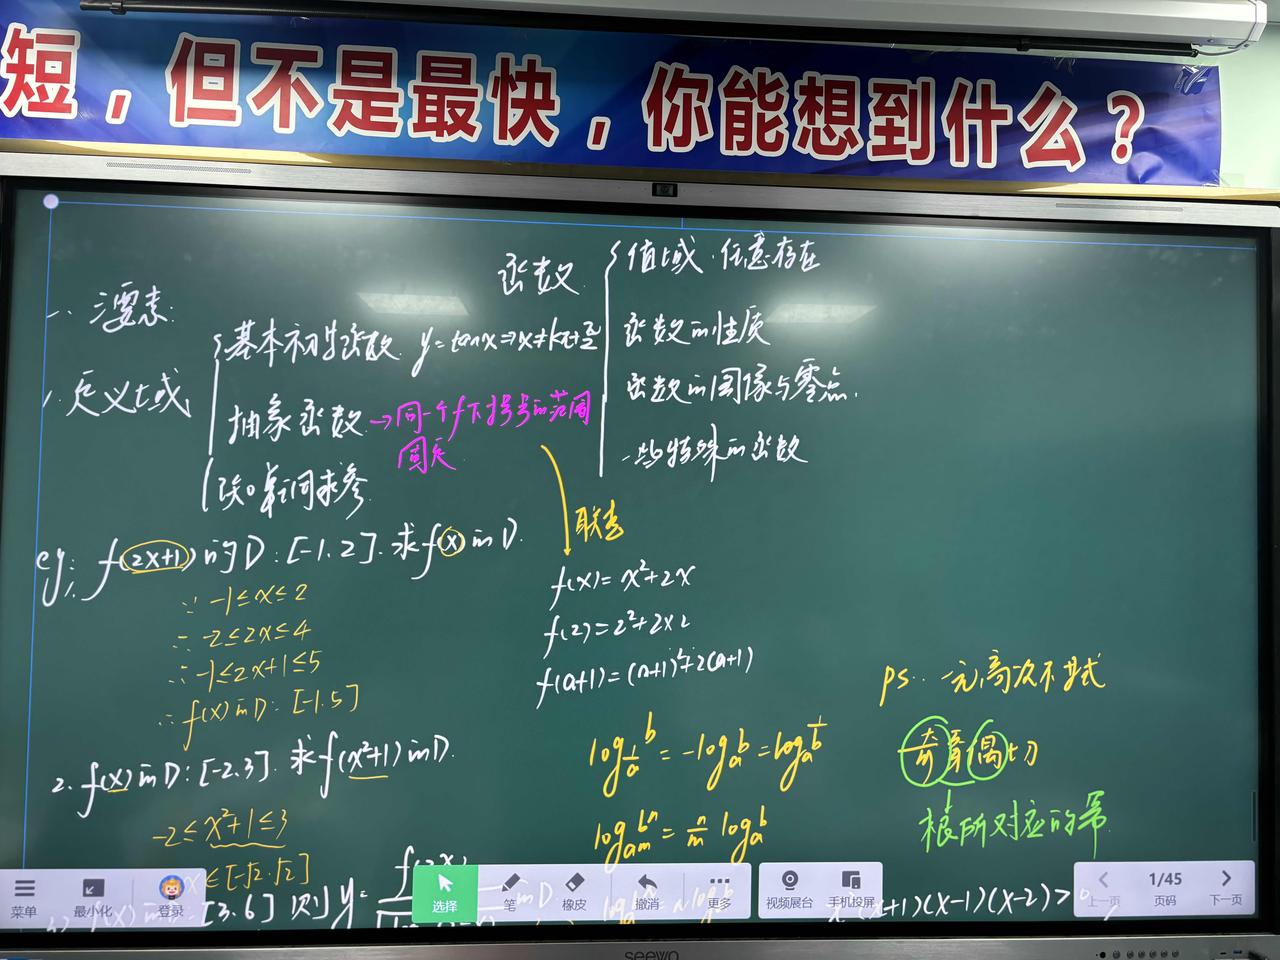 短，但不是最快，你能想到什么？
函数
值域.任意存在
函数的性质
函数的图像与零点.
一些特殊的函数
一.三要素:
1.定义域
基本初等函数. y=tanx⇒x≠kπ+π/2
抽象函数→同一个f下括号的范围
固定
已知单调求参
eg: 1. f(2x+1)的D:[-1.2].求f(x)的D.
∵ -1≤x≤2
∴ -2≤2x≤4
∴ -1≤2x+1≤5
∴ f(x)的D:[-1.5]
联想
f(x)=x²+2x
f(2)=2²+2×2
f(a+1)=(a+1)²+2(a+1)
2. f(x)的D:[-2.3].求f(x²+1)的D.
-2≤x²+1≤3
x∈[-√2.√2]
[3.6] 则y=
的D
log_{1/a} b = -log_a b = log_a 1/b
log_{a^m} b^n = n/m log_a b
ps. 一元高次不等式
奇穿偶切
根所对应的幂
(x+1)(x-1)(x-2)>0
菜单
最小化
登录
选择
笔
橡皮
撤消
更多
视频展台
手机投屏
上一页
1/45
页码
下一页
seewo